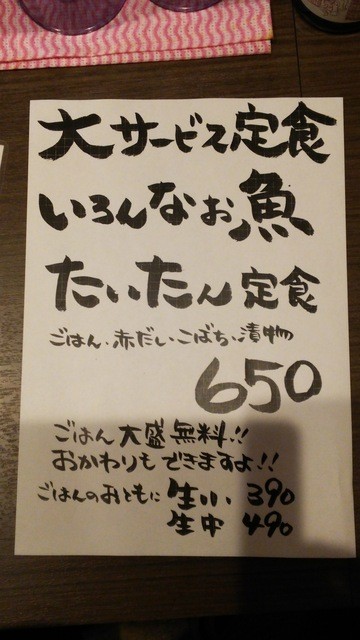 大サービス定食
いろんなお魚
たいたん定食
ごはん、赤だい、こばち、漬物
650
ごはん大盛無料!!
おかわりもできますよ!!
ごはんのおともに 生小 390
生中 490